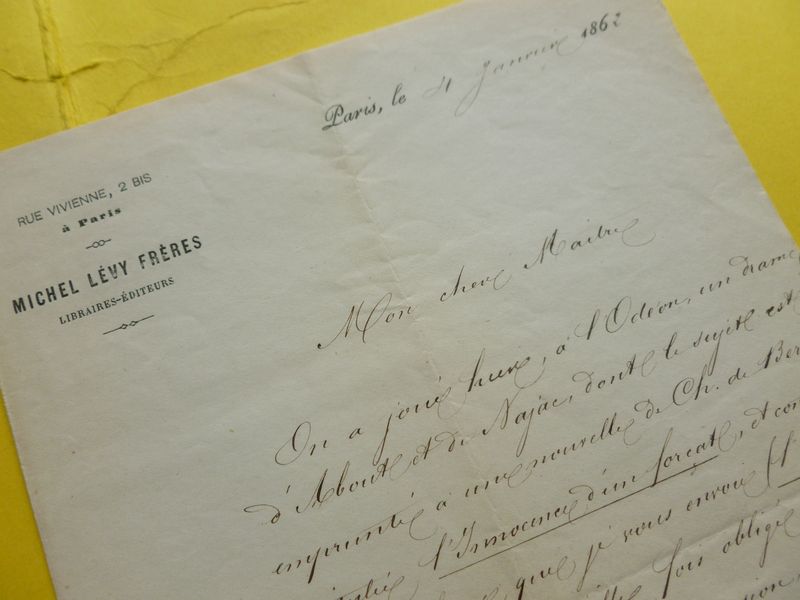 Paris, le 4 Janvier 1862
RUE VIVIENNE, 2 BIS
à Paris
MICHEL LÉVY FRÈRES
LIBRAIRES-ÉDITEURS
Mon cher Maître
On a joué hier, à l'Odéon, un drame
d'About et de Najac, dont le sujet est
emprunté à une nouvelle de Ch. de Ber
l'Innocence d'un forçat, et com
que je vous envoie (l'
fois obligé